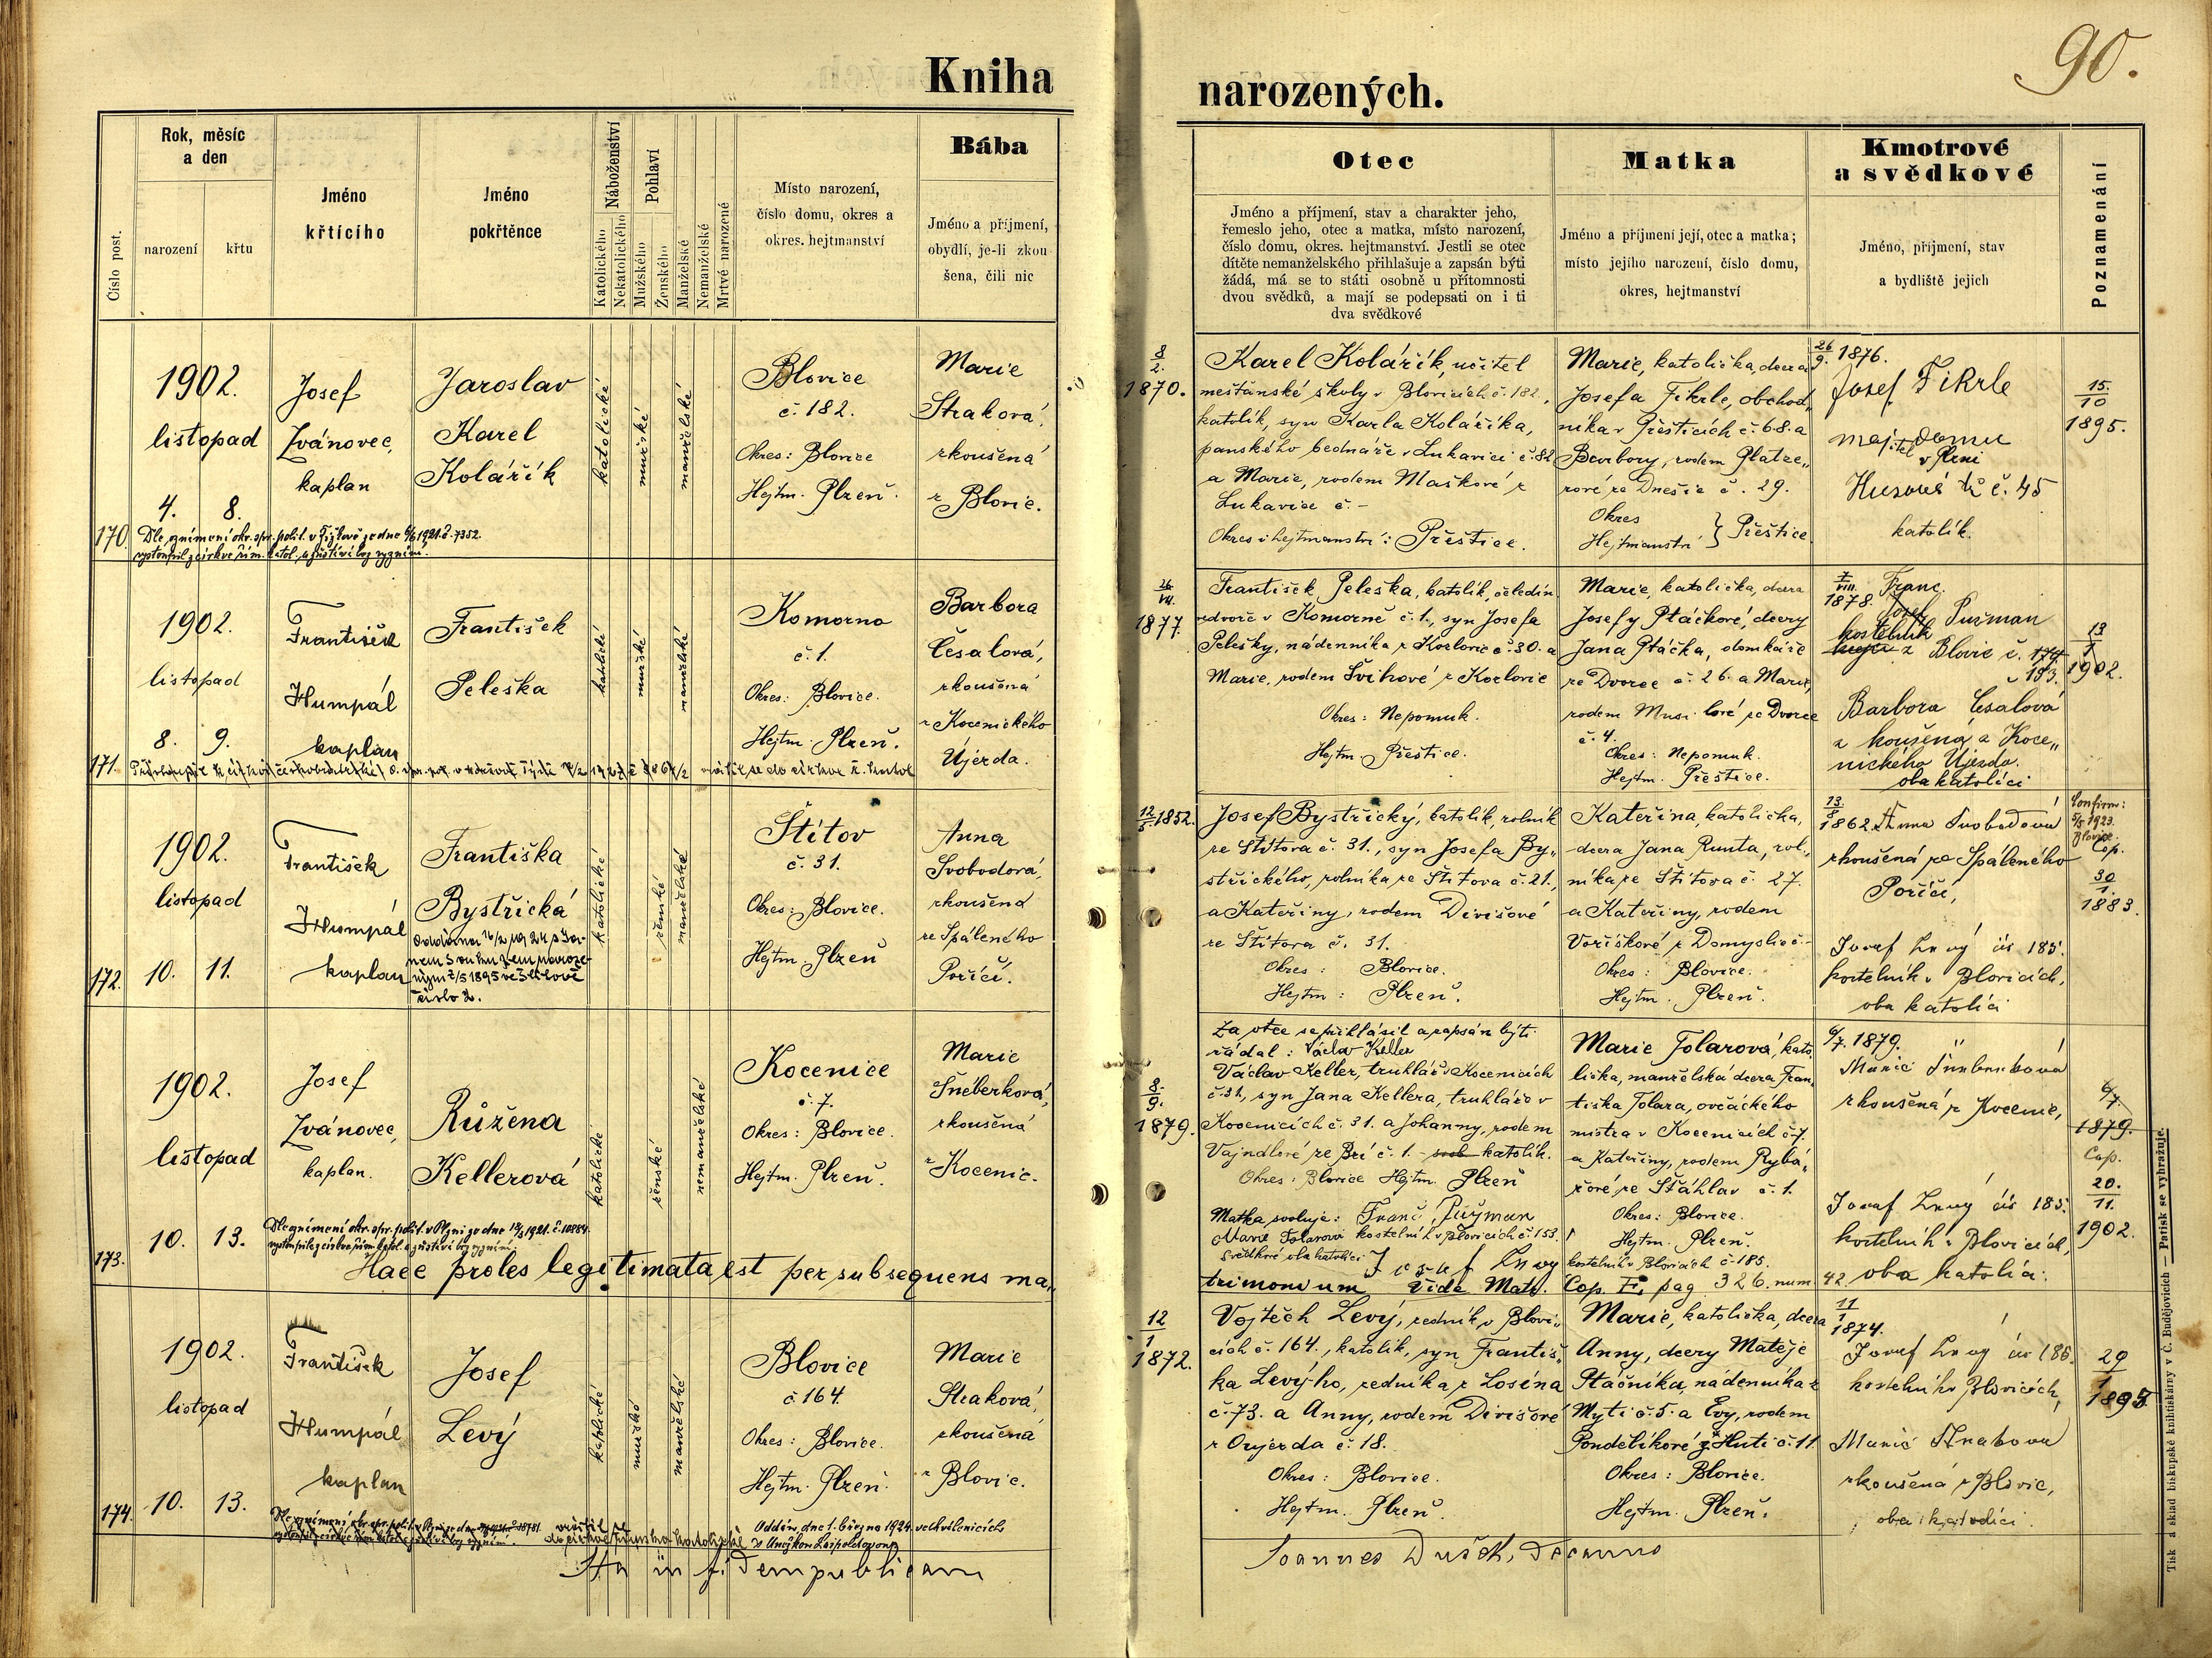 90.
Kniha narozených.
Číslo post.
Rok, měsíc a den
narození
křtu
Jméno křtícího
Jméno pokřtěnce
Náboženství
Katolického
Nekatolického
Pohlaví
Mužského
Ženského
Manželské
Nemanželské
Mrtvě narozené
Místo narození,
číslo domu, okres a
okres. hejtmanství
Bába
Jméno a příjmení,
obydlí, je-li zkou
šena, čili nic
Otec
Jméno a příjmení, stav a charakter jeho,
řemeslo jeho, otec a matka, místo narození,
číslo domu, okres. hejtmanství. Jestli se otec
dítěte nemanželského přihlašuje a zapsán býti
žádá, má se to státi osobně u přítomnosti
dvou svědků, a mají se podepsati on i ti
dva svědkové
Matka
Jméno a příjmení její, otec a matka;
místo jejího narození, číslo domu,
okres, hejtmanství
Kmotrové
a svědkové
Jméno, příjmení, stav
a bydliště jejich
Poznamenání
170.
1902.
listopad
4. 8.
Josef
Zvánovec,
kaplan
Jaroslav
Karel
Kolářík
katolické
mužské
manželské
Blovice
č. 182.
Okres: Blovice
Hejtm. Plzeň.
Marie
Straková,
zkoušená
z Blovic.
8/2. 1870.
Karel Kolářík, učitel
měšťanské školy v Blovicích č. 182.,
katolík, syn Karla Koláříka,
panského bednáře v Lukavici č. 82
a Marie, rodem Maškové z
Lukavice č. -
Okres i hejtmanství: Přeštice.
Marie, katolička, dcera
Josefa Fikrle, obchod„
níka v Přešticích č. 68. a
Barbory, rodem Platze„
rové ze Dnešic č. 29.
Okres
Hejtmanství } Přeštice
26/9. 1876.
Josef Fikrle
majitel domu
v Plzni
Husova tř. č. 45
katolík.
15./10 1895.
171.
1902.
listopad
8. 9.
František
Humpál
kaplan
František
Peleška
katolické
mužské
manželské
Komorno
č. 1.
Okres: Blovice.
Hejtm. Plzeň.
Barbora
Česalová,
zkoušená
z Kocenického
Újezda.
26./VII. 1877.
František Peleška, katolík, čeledín
ve dvoře v Komorně č. 1., syn Josefa
Pelešky, nádenníka z Kozlovic č. 30. a
Marie, rodem Švihové z Kozlovic
Okres: Nepomuk.
Hejtm. Přeštice.
Marie, katolička, dcera
Josefy Ptáčkové, dcery
Jana Ptáčka, domkáře
ze Dvorce č. 26. a Marie,
rodem Musilové ze Dvorce
č. 4.
Okres: Nepomuk.
Hejtm. Přeštice.
7/VIII. 1878.
Franc.
Josef Pučman
kostelník
z Blovic č. 174.
č. 153.
Barbora Česalová
zkoušená z Koce„
nického Újezda.
oba katolíci
13/7 1902.
172.
1902.
listopad
10. 11.
František
Humpál
kaplan
Františka
Bystřická
číslo 2.
katolické
ženské
manželské
Štítov
č. 31.
Okres: Blovice.
Hejtm. Plzeň
Anna
Svobodová,
zkoušená
ze Spáleného
Poříčí.
12/5 1852.
Josef Bystřický, katolík, rolník
ze Štítova č. 31., syn Josefa By„
střického, rolníka ze Štítova č. 21.,
a Kateřiny, rodem Divišové
ze Štítova č. 31.
Okres: Blovice.
Hejtm: Plzeň.
Kateřina, katolička,
dcera Jana Runta, rol„
níka ze Štítova č. 27.
a Kateřiny, rodem
Voříškové z Domyslic č. -
Okres: Blovice.
Hejtm. Plzeň.
13./8 1862.
Anna Svobodová
zkoušená ze Spáleného
Poříčí,
Josef Levý čís 185.
kostelník v Blovicích,
oba katolíci
Confirm:
5/5 1923.
Blovice.
Cop.
30/1. 1883.
173.
1902.
listopad
10. 13.
Josef
Zvánovec,
kaplan.
Růžena
Kellerová
katolické
ženské
nemanželské
Kocenice
č. 7.
Okres: Blovice.
Hejtm. Plzeň.
Marie
Šneberková,
zkoušená
z Kocenic.
8./9. 1879.
Za otce se přihlásil a zapsán býti
žádal: Václav Keller
Václav Keller, truhlář v Kocenicích
č. 31, syn Jana Kellera, truhláře v
Kocenicích č. 31. a Johanny, rodem
Vajndlové ze Zdí č. 1. katolík.
Okres: Blovice Hejtm. Plzeň
Matka svoluje:
Marie Tolarová
Franc. Pučman
kostelník v Blovicích č. 153.
Svědkové oba katolíci:
Josef Levý
kostelník v Blovicích č. 185.
Marie Tolarová, kato
lička, manželská dcera Fran„
tiška Tolara, ovčáckého
mistra v Kocenicích č. 7.
a Kateřiny, rodem Rybá„
řové ze Šťáhlav č. 1.
Okres: Blovice.
Hejtm. Plzeň.
6/7. 1879.
Marie Šneberková
zkoušená z Kocenic,
Josef Levý čís 185.
kostelník v Blovicích,
oba katolíci.
6/7. 1879.
Cop.
20./11. 1902.
Haec proles legitimata est per subsequens ma„
trimonium Vide Matr. Cop. pag 326. num 42.
174.
1902.
listopad
10. 13.
František
Humpál
kaplan
Josef
Levý
katolické
mužské
manželské
Blovice
č 164
Okres: Blovice.
Hejtm. Plzeň.
Marie
Straková,
zkoušená
z Blovic.
12/1 1872.
Vojtěch Levý, zedník v Blovi„
cích č. 164., katolík, syn Františ„
ka Levýho, zedníka z Losiná
č. 73. a Anny, rodem Divišové
z Oujezda č. 18.
Okres: Blovice.
Hejtm. Plzeň.
Marie, katolička, dcera
Anny, dcery Matěje
Ptáčníka, nádenníka z
Mytí č. 5. a Evy, rodem
Pondělíkové z Hutí č. 11
Okres: Blovice.
Hejtm. Plzeň.
11/1 1874.
Josef Levý čís 185.
kostelník v Blovicích,
Marie Straková
zkoušená z Blovic,
oba katolíci.
29/1 1895.
Oddán dne 1. března 1924
Ita in fidem publicam
Joannes Dušek, Decanus
Tisk a sklad biskupské knihtiskárny v Č. Budějovicích — Patisk se vyhražuje.